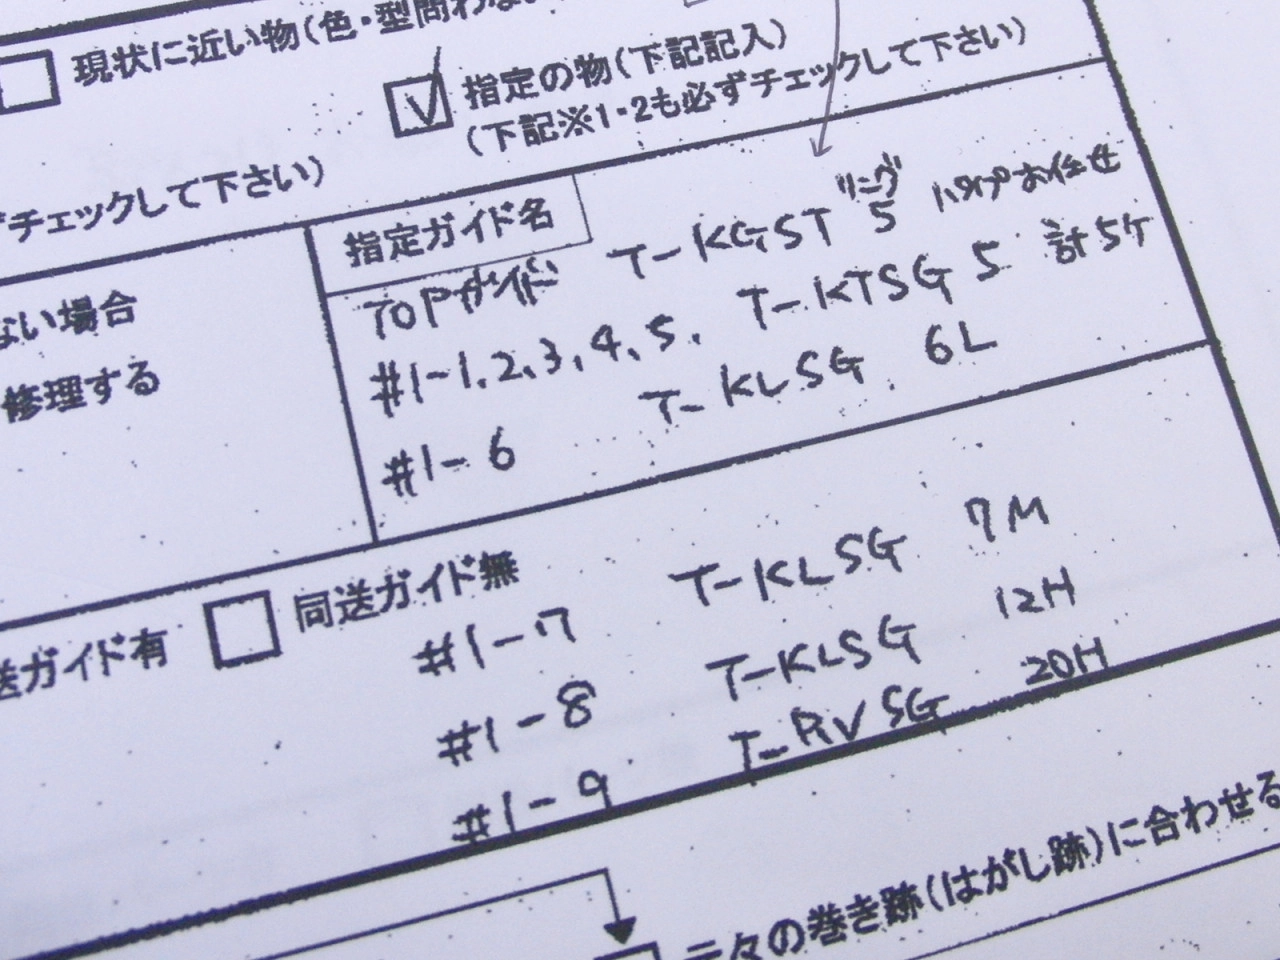 現状に近い物(色・型問わない
指定の物(下記記入)
(下記※1・2も必ずチェックして下さい)
チェックして下さい)
指定ガイド名
ない場合
修理する
TOPガイド T-KGST リング 5 パイプお任せ
#1-1.2.3.4.5. T-KTSG 5 計5ケ
#1-6 T-KLSG 6L
送ガイド有 同送ガイド無
#1-7 T-KLSG 7M
#1-8 T-KLSG 12H
#1-9 T-RVSG 20H
元々の巻き跡(はがし跡)に合わせる